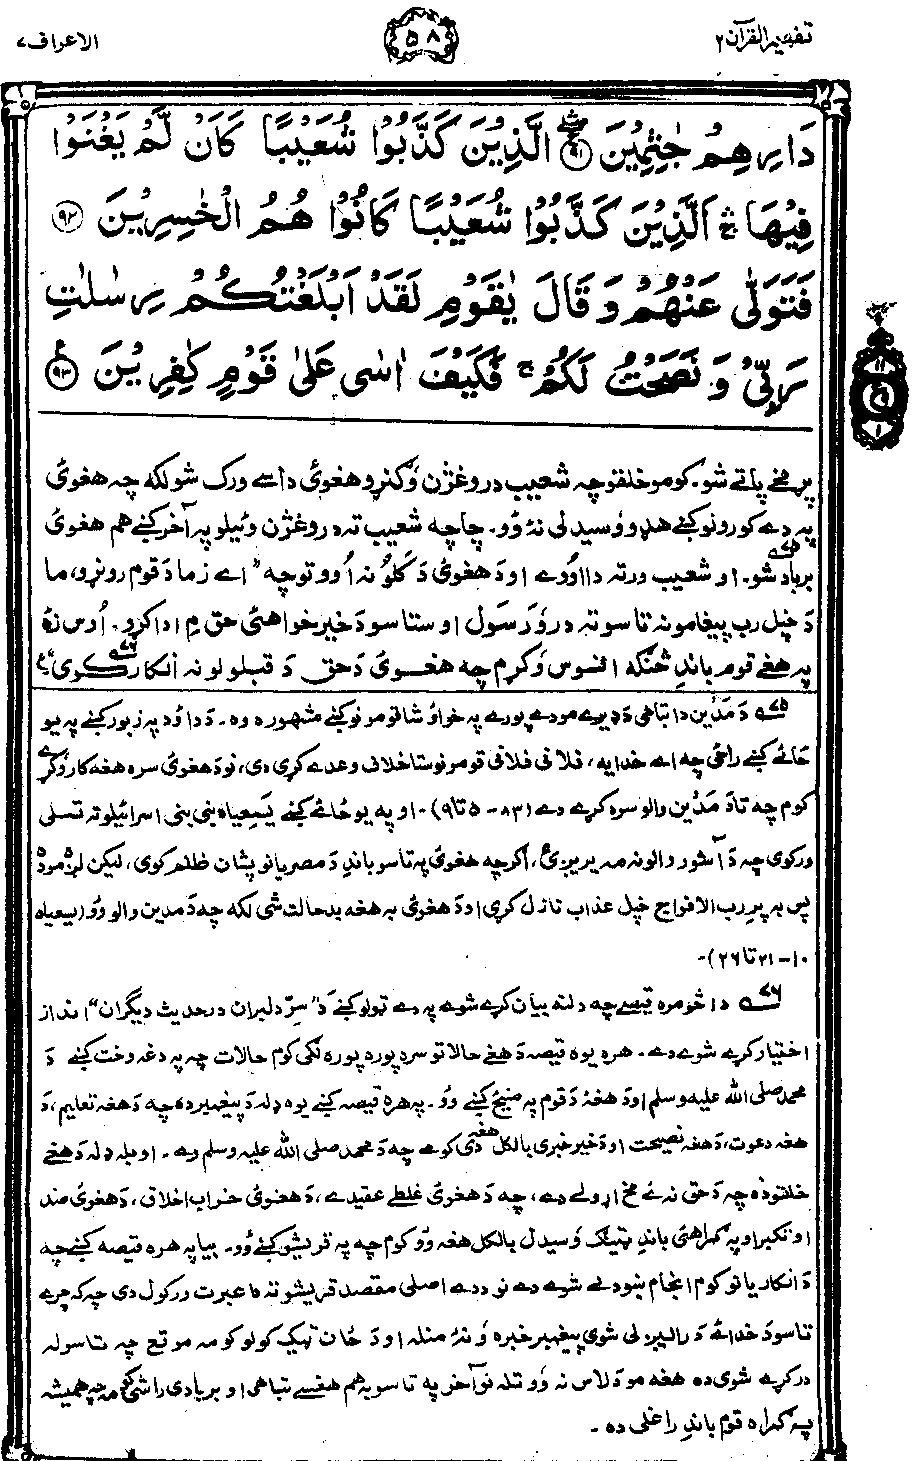 تفهیم القرآن ۲
۵۸
الاعراف ۷
دَارِهِمْ جٰثِمِيْنَ ۹۱ الَّذِيْنَ كَذَّبُوْا شُعَيْبًا كَاَنْ لَّمْ يَغْنَوْا
فِيْهَا ۛ اَلَّذِيْنَ كَذَّبُوْا شُعَيْبًا كَانُوْا هُمُ الْخٰسِرِيْنَ ۹۲
فَتَوَلّٰى عَنْهُمْ وَ قَالَ يٰقَوْمِ لَقَدْ اَبْلَغْتُكُمْ رِسٰلٰتِ
رَبِّيْ وَ نَصَحْتُ لَكُمْ ۚ فَكَيْفَ اٰسٰى عَلٰى قَوْمٍ كٰفِرِيْنَ ۹۳
پرمخے پاتے شو۔ کومو خلقو چہ شعیب دروغژن وګنړو هغوئ داسے ورک شو لکه چه هغوئ
په دے کورونو کښے هډو وسیدلی نۀ وُو۔ چا چه شعیب ته دروغژن وئیلو په آخر کښے هم هغوئ
برباد شو۔ او شعیب ورته دا اُووے او دَ هغوئ دَ کلو نه اُووتو چه "اے زما دَ قوم رونړو، ما
دَ خپل رب پیغامونه تاسو ته دررَسَول او ستاسو دَ خیر خواهئ حق مِ ادا کړو۔ اُوس زۀ
په هغے قوم باندِ څنګه افسوس وُکړم چه هغوئ دَ حق دَ قبلولو نه انکار کوی"
۷۵ دَ مَدْین دا تباهی دَ ډیرے مودے پورے په خواؤ شا قومونو کښے مشهوره وه۔ دَ داؤد په زبور کښے په یو
ځائے کښے راځی چه اے خدایه، فلانی فلانی قومونو ستا خلاف وعدے کړی دی، نو دَ هغوئ سره هغه کار وُکړے
کوم چه تا دَ مَدْین والو سره کړے دے (۸۳- ۵تا۹)- او په یو ځائے کښے یسعیاه نبی بنی اسرائیلو ته تسلی
ورکوی چه دَ آشور والو نه مه یریږئ، اګرچه هغوئ په تاسو باندِ دَ مصریانو پشان ظلم کوی، لیکن لږه موده
پس به پرِ رب الافواج خپل عذاب نازل کړی او دَ هغوئ به هغه بد حالت شی لکه چه دَ مدین والو وُو (یسعیاه
۱۰-۲۱تا۲۶)-
۷۶ دا څومره قیصے چه دلته بیان کړے شوے په دے ټولو کښے دَ "سرِّ دلبران در حدیث دیگران" انداز
اختیار کړے شوے دے۔ هره یوه قیصه دَ هغے حالاتو سره پوره پوره لګی کوم حالات چه په دغه وخت کښے دَ
محمد صلی الله علیه وسلم او دَ هغۀ دَ قوم په منیځ کښے وُو۔ په هره قیصه کښے یوه ډله دَ پیغمبر ده چه دَ هغه تعلیم، دَ
هغه دعوت، دَ هغه نصیحت او دَ خیر خبری بالکل هغه دی کوم چه دَ محمد صلی الله علیه وسلم دے۔ او بله ډله دَ هغے
خلقو ده چه دَ حق نه ئے مخ اړولے دے، چه دَ هغوئ غلطے عقیدے، دَ هغوئ خراب اخلاق، دَ هغوئ ضد
او تکبر او په ګمراهئ باندِ ټینګ وُسیدل بالکل هغه وُو کوم چه په قریشو کښے وُو۔ بیا په هره قیصه کښے چه
دَ انکاریانو کوم انجام ښودلے شوے دے نو ددے اصلی مقصد قریشو ته عبرت ورکول دی چه که چرے
تاسو دَ خدائے دَ رالیږلی شوی پیغمبر خبره وُ نۀ منله او دَ ځان ټیک کولو کومه موقع چه تاسو له
درکړے شوی ده هغه مو دَ لاس نه وُوتله نو آخر په تاسو به هم هغسے تباهی او بربادی راشی کومه چه همیشه
په ګمراه قوم باندِ راغلی ده۔